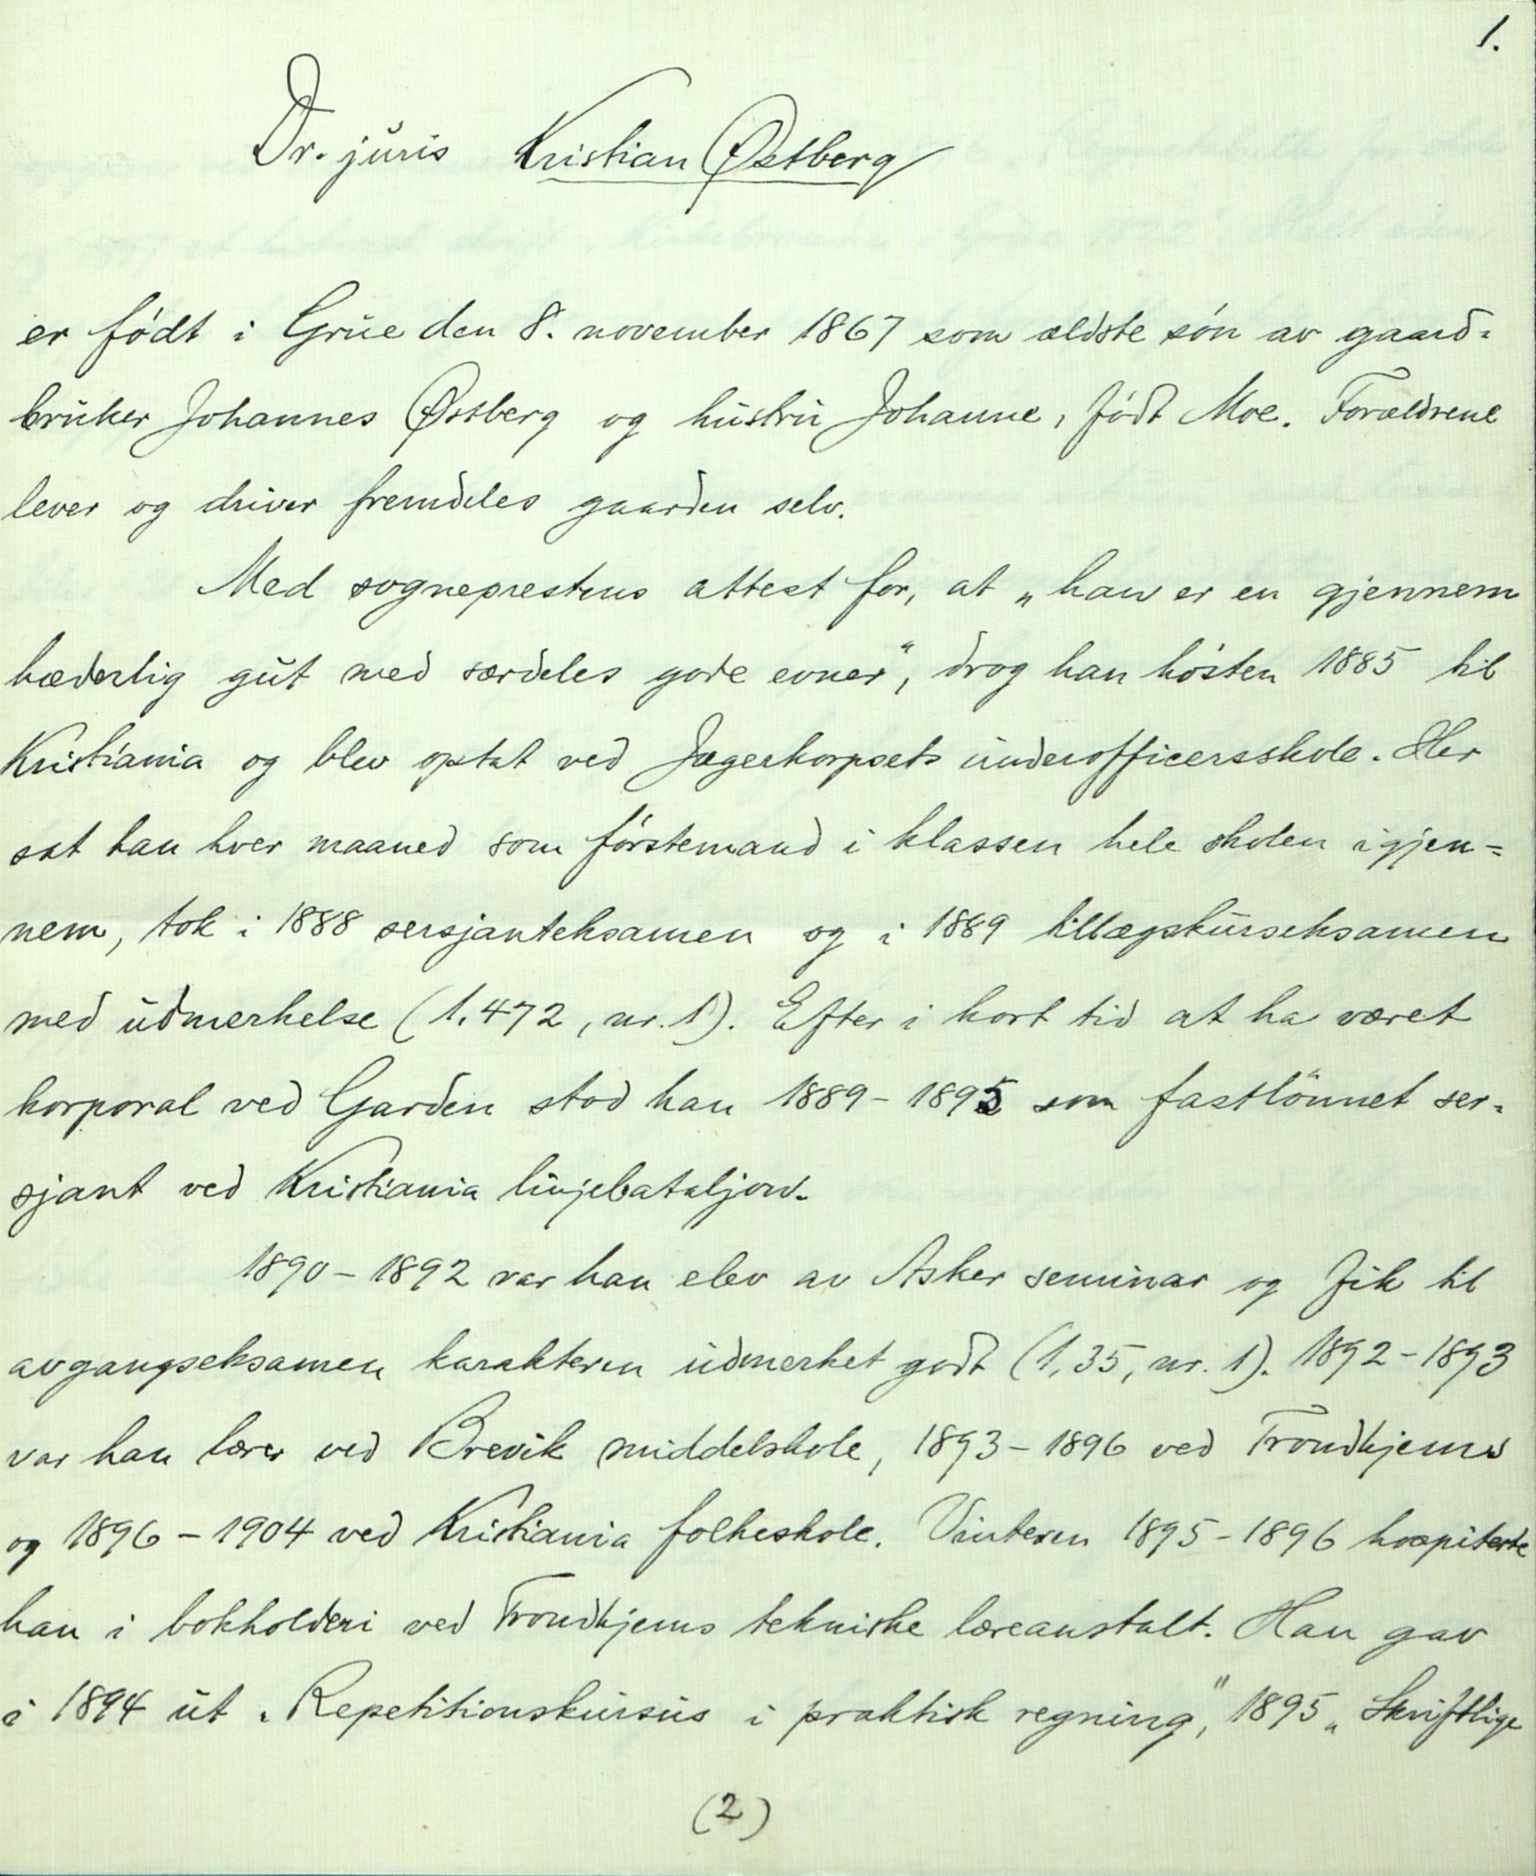 1.
Dr. juris Kristian Østberg
er födt i Grue den 8. november 1867 som ældste sön av gaard=
bruker Johannes Østberg og hustru Johanne, födt Moe. Forældrene
lever og driver fremdeles gaarden selv.
Med sogneprestens attest for, at „han er en gjennem
hæderlig gut med særdeles gode evner“, drog han hösten 1885 til
Kristiania og blev optat ved Jægerkorpsets underofficersskole. Her
sat han hver maaned som förstemand i klassen hele skolen igjen=
nem, tok i 1888 sersjanteksamen og i 1889 tillægskurseksamen
med udmerkelse (1.472, nr. 1). Efter i kort tid at ha været
korporal ved Garden stod han 1889-1895 som fastlönnet ser=
sjant ved Kristiania linjebataljon.
1890-1892 var han elev av Asker seminar og fik til
avgangseksamen karakteren udmerket godt (1,35, nr. 1). 1892-1893
var han lærer ved Brevik middelskole, 1893-1896 ved Trondhjems
og 1896-1904 ved Kristiania folkeskole. Vinteren 1895-1896 hospiterte
han i bokholderi ved Trondhjems tekniske læreanstalt. Han gav
i 1894 ut „Repetitionskursus i praktisk regning“, 1895 „Skriftlige
(2)